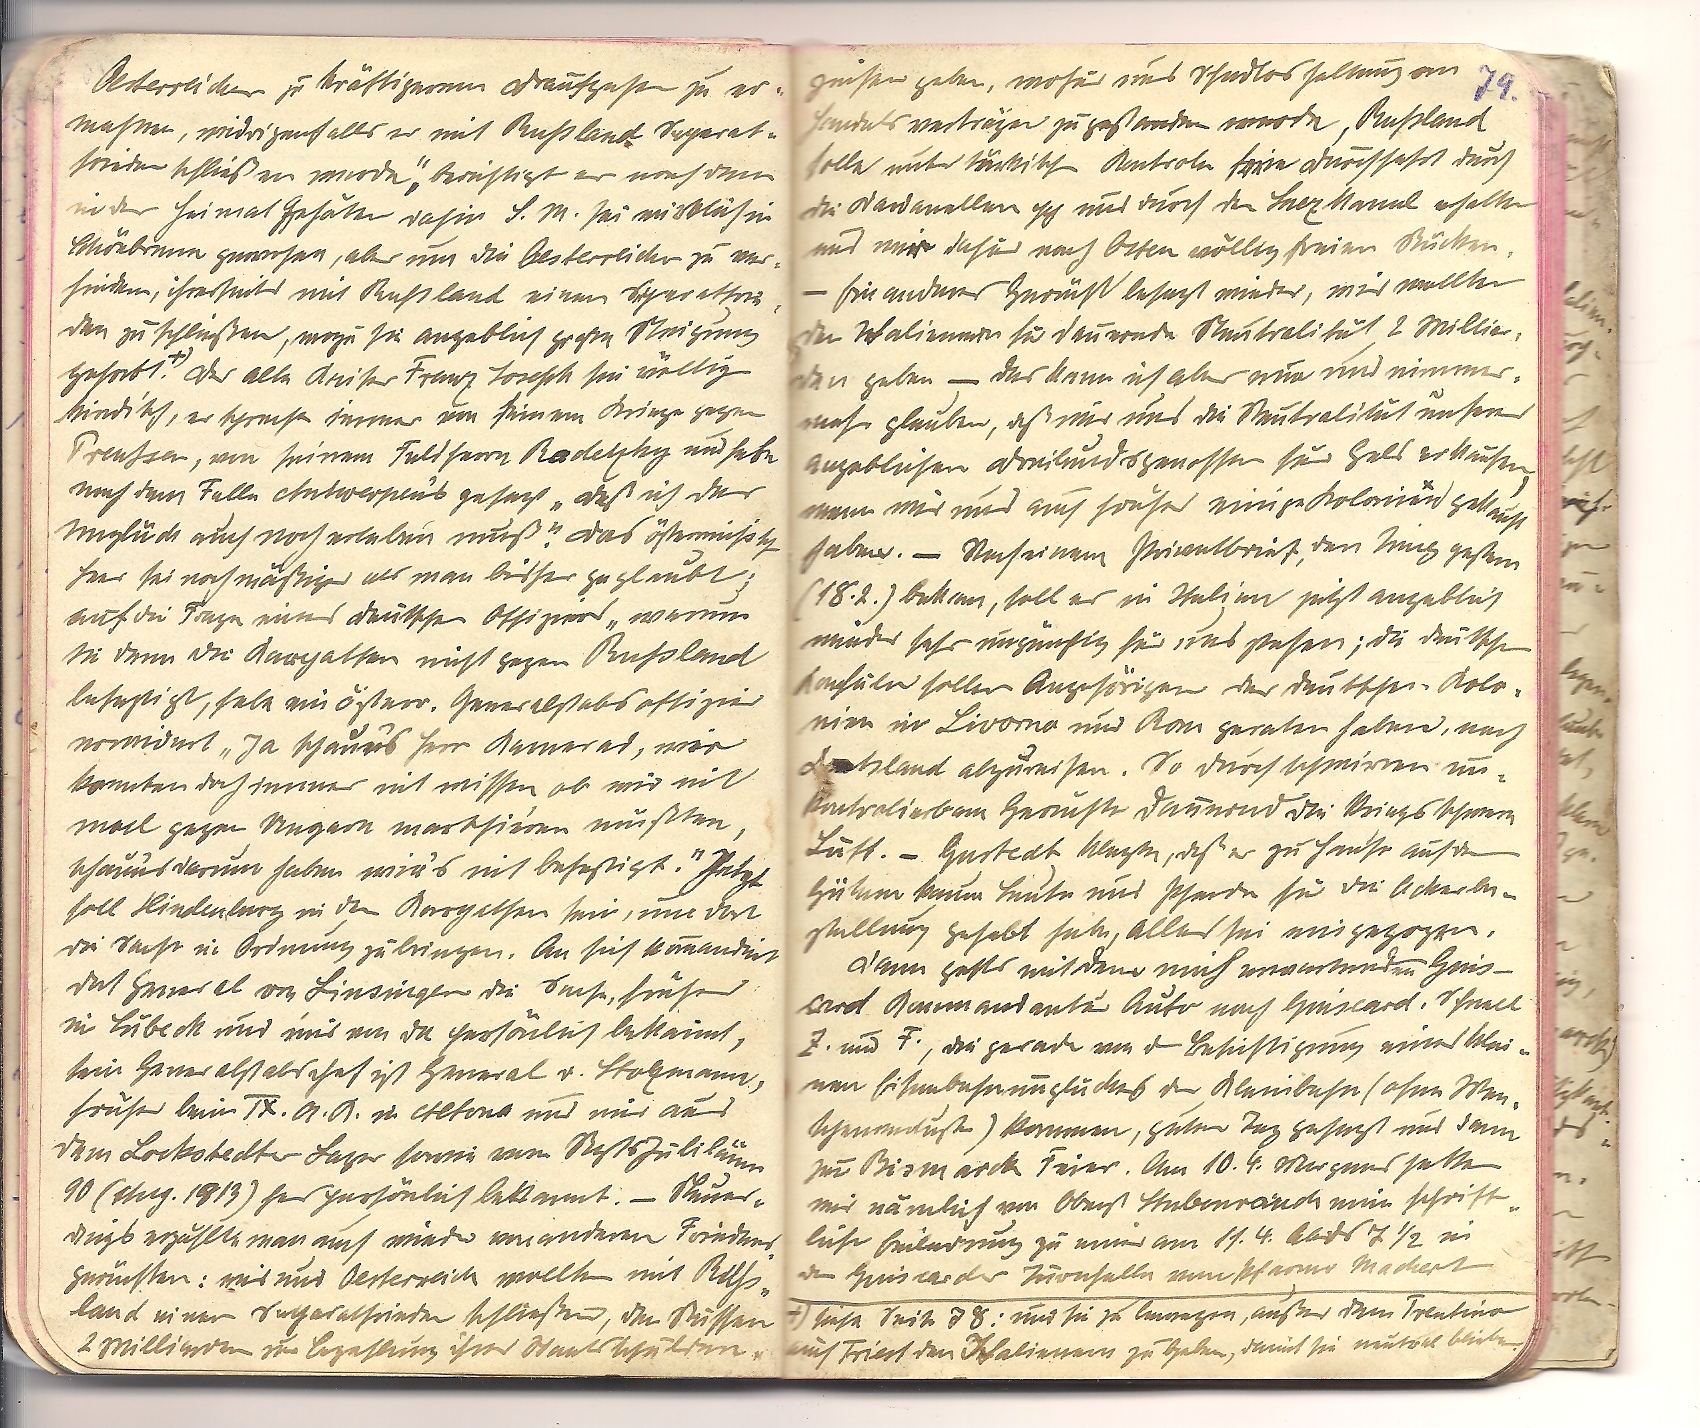 Oesterreicher zu kräftigerem Draufgehen zu er-
mahnen, widrigenfalls er mit Rußland Separat-
frieden schließen werde", berichtigt er nach dem
in der Heimat Gehörten dahin S. M. sei wirklich in
Schönbrunn gewesen, aber um die Oesterreicher zu ver-
hindern, ihrerseits mit Rußland einen Separatfrie-
den zu schließen, wozu sie angeblich große Neigung
gehabt.+) Der alte Kaiser Franz Joseph sei völlig
kindisch, er spreche immer von seinem Kriege gegen
Preussen, von seinem Feldherrn Radetzky und habe
nach dem Falle Antwerpens gesagt „daß ich das
Unglück auch noch erleben muß". Das österreichische
Heer sei noch mäßiger als man bisher geglaubt;
auf die Frage eines deutschen Offiziers „warum
sie denn die Karpathen nicht gegen Rußland
befestigt, habe ein österr. Generalstabsoffizier
erwidert „Ja schaun's Herr Kamerad, wir
konnten doch immer nit wissen ob wir nit
mal gegen Ungarn marschieren müßten,
schaun's darum haben wir's nit befestigt." Jetzt
soll Hindenburg in den Karpathen sein, um dort
die Sache in Ordnung zu bringen. An sich kommandiert
dort General von Linsingen die Sache, früher
in Lübeck und mir von da persönlich bekannt,
sein Generalstabschef ist General v. Stolzmann,
früher beim IX. A. K. in Altona und mir aus
dem Lockstedter Lager sowie vom Regts Jubiläum
90 (Aug. 1913) her persönlich bekannt. – Neuer-
dings erzählte man auch wieder von anderen Friedens-
gerüchten: wir und Oesterreich wollten mit Ruß-
land einen Separatfrieden schließen, den Russen
2 Milliarden zur Bezahlung ihrer Staatsschulden
79.
geben, wofür uns Schadloshaltung an
Handelsverträgen zugestanden werde, Rußland
solle unter türkischer Kontrole freie Durchfahrt durch
die Dardanellen und durch den Suez Kanal erhalten
und wir dafür nach Osten völlig freien Rücken.
– Ein anderes Gerücht besagt wieder, wir wollten
den Italienern für dauernde Neutralität 2 Milliar-
den geben – das kann ich aber nun und nimmer-
mehr glauben, daß wir uns die Neutralität unserer
angeblichen Dreibundsgenossen für Geld erkaufen,
wenn wir uns auch früher einige Kolonien gekauft
haben. – Nach einem Privatbrief, den gestern
(18.2.) bekam, soll es in Italien jetzt angeblich
wieder sehr ungünstig für uns stehen; die deutschen
Konsuln sollen Angehörigen der deutschen Kolo-
nien in Livorno und Rom geraten haben, nach
Deutschland abzureisen. So durchschwirren un-
kontrolierbare Gerüchte dauernd die kriegsschwere
Luft. – Gustedt klagte, daß er zu Hause auf den
Gütern kaum Leute und Pferde für die Ackerbe-
stellung gehabt habe, alles sei eingezogen.
Dann gehts mit dem mich erwartenden Guis-
card Kommandantur Auto nach Guiscard. Schnell
Z. und F., die gerade von der Besichtigung eines klei-
nen Eisenbahnunglückes der Kleinbahn (ohne Men-
schenverluste) kommen, guten Tag gesagt und dann
zur Bismarck Feier. Am 10.4. Morgens hatten
wir nämlich von Oberst Stubenrauch eine schrift-
liche Einladung zu einer am 11.4. Abds 7 1/2 in
der Guiscarder Turnhalle vom Pfarrer Machert
+) siehe Seite 78: und sie zu bewegen, außer dem Trentino
auch Triest den Italienern zu geben, damit sie neutral bleiben.